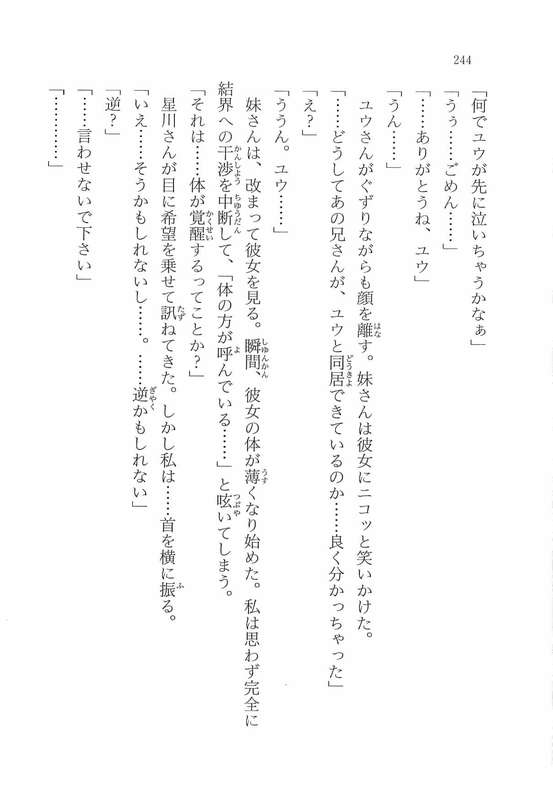 244
「何でユウが先に泣いちゃうかなぁ」
「うぅ……ごめん……」
「……ありがとうね、ユウ」
「うん……」
ユウさんがぐずりながらも顔を離す。妹さんは彼女にニコッと笑いかけた。
「……どうしてあの兄さんが、ユウと同居できているのか……良く分かっちゃった」
「え？」
「ううん。ユウ……」
妹さんは、改まって彼女を見る。瞬間、彼女の体が薄くなり始めた。私は思わず完全に
結界への干渉を中断して、「体の方が呼んでいる……」と呟いてしまう。
「それは……体が覚醒するってことか？」
星川さんが目に希望を乗せて訊ねてきた。しかし私は……首を横に振る。
「いえ……そうかもしれないし……。……逆かもしれない」
「逆？」
「……言わせないで下さい」
「…………」